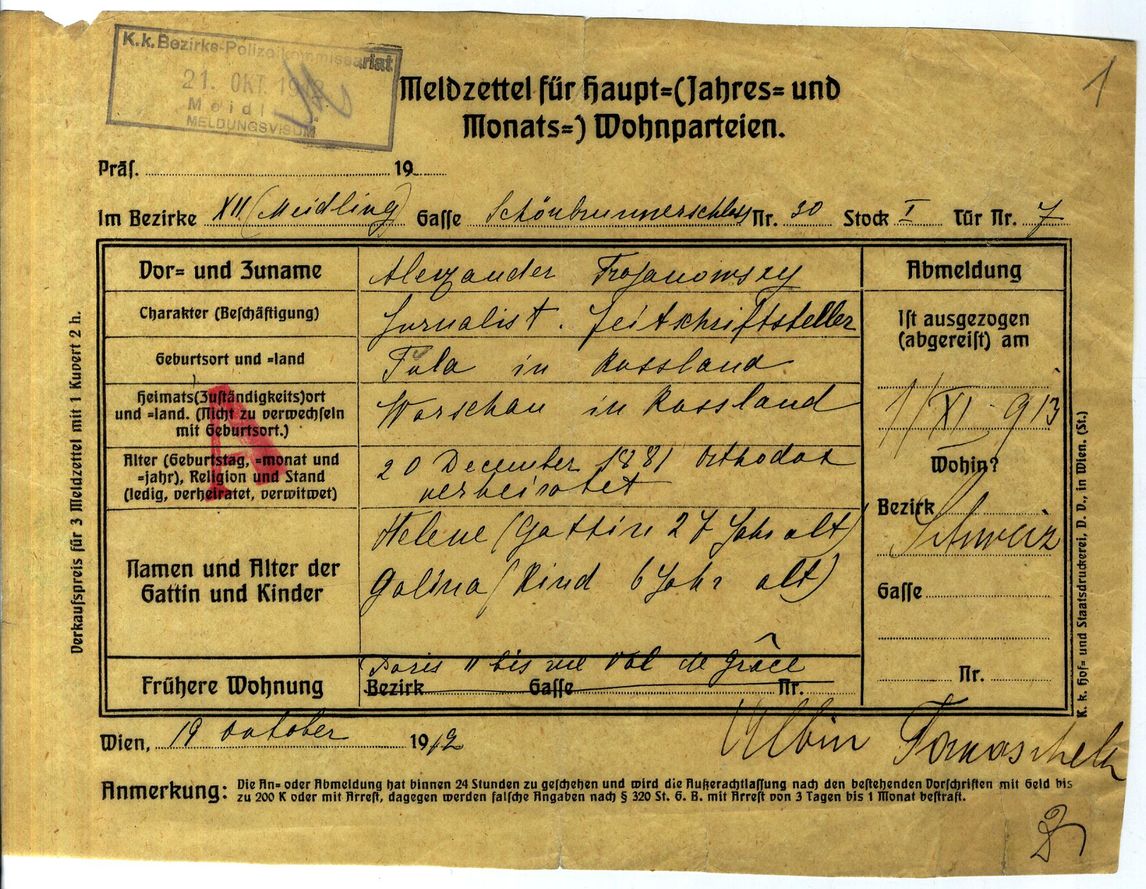 K.k. Bezirks-Polizeikommissariat
21. OKT. 1912
Meidl
MELDUNGSVISUM
1
Meldzettel für Haupt=(Jahres= und
Monats=) Wohnparteien.
Präs. 19
Im Bezirke XII (Meidling) Gasse Schönbrunnerschloss Nr. 30 Stock I Tür Nr. 7
Vor= und Zuname Alexander Trojanowszy
Charakter (Beschäftigung) Jurnalist. Zeitschriftsteller
Geburtsort und =land Tula in Russland
Heimats(Zuständigkeits)ort
und =land. (Nicht zu verwechseln
mit Geburtsort.)
Warschau in Russland
Alter (Geburtstag, =monat und
=jahr), Religion und Stand
(ledig, verheiratet, verwitwet)
20 December 1881 Orthodox
verheiratet
Namen und Alter der
Gattin und Kinder
Helene (Gattin 27 Jahr alt)
Galina (Kind 6 Jahr alt)
Frühere Wohnung
Paris 11 bis rue Val de Grâce
Bezirk Gasse Nr.
Abmeldung
Ist ausgezogen
(abgereist) am
1/XI 913
Wohin?
Bezirk
Schweiz
Gasse
Nr.
Wien, 19 october 1912
Albin Tomaschek
Anmerkung: Die An= oder Abmeldung hat binnen 24 Stunden zu geschehen und wird die Außerachtlassung nach den bestehenden Vorschriften mit Geld bis
zu 200 K oder mit Arrest, dagegen werden falsche Angaben nach § 320 St. G. B. mit Arrest von 3 Tagen bis 1 Monat bestraft.
Verkaufspreis für 3 Meldzettel mit 1 Kuvert 2 h.
K. k. Hof= und Staatsdruckerei, D. V., in Wien. (St.)
A